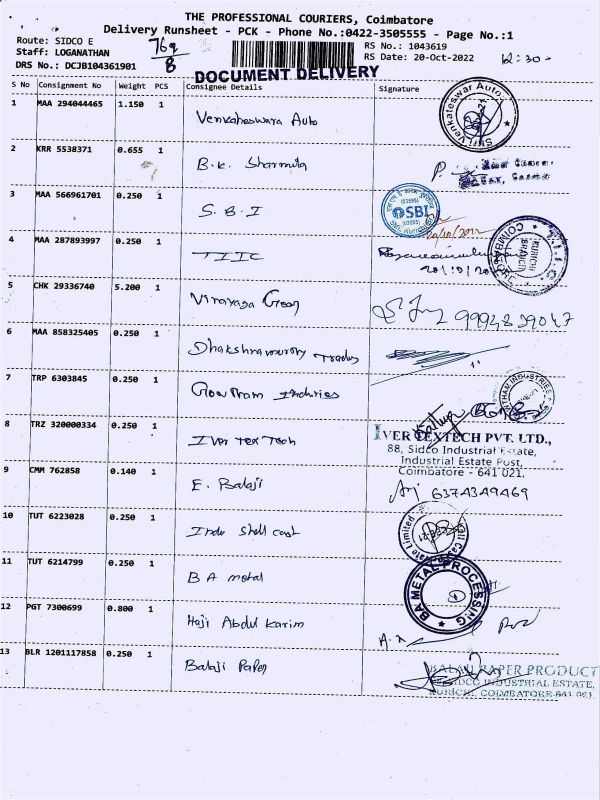 THE PROFESSIONAL COURIERS, Coimbatore
Delivery Runsheet - PCK - Phone No.:0422-3505555 - Page No.:1
Route: SIDCO E
Staff: LOGANATHAN
DRS No.: DCJB104361901
769
8
RS No.: 1043619
RS Date: 20-Oct-2022
12:30-
DOCUMENT DELIVERY
S No Consignment No Weight PCS Consignee Details Signature
1 MAA 294044465 1.150 1 Venkateswara Auto
Shri Venkateswar Auto
2 KRR 5538371 0.655 1 B.K. Sharmila
3 MAA 566961701 0.250 1 S.B.I
SBI
20/10/2022
4 MAA 287893997 0.250 1 TIIC
KURICHI BRANCH
COIMBATORE
5 CHK 29336740 5.200 1 Vinayaga Groon
6 MAA 858325405 0.250 1 Dhakshnamurthy Traders
7 TRP 6303845 0.250 1 Goutham Industries
8 TRZ 320000334 0.250 1 Iver Tex Tech
IVER TEXTECH PVT. LTD.,
88, Sidco Industrial Estate,
Industrial Estate Post,
Coimbatore - 641 021.
9 CMM 762858 0.140 1 E. Balaji
6374349469
10 TUT 6223028 0.250 1 Indo Shell Cast
11 TUT 6214799 0.250 1 B A metal
BA METAL PROCESSING
12 PGT 7300699 0.800 1 Haji Abdul Karim
13 BLR 1201117858 0.250 1 Balaji Paper
BALAJI PAPER PRODUCT
SIDCO INDUSTRIAL ESTATE,
KURICHI, COIMBATORE-641 021.